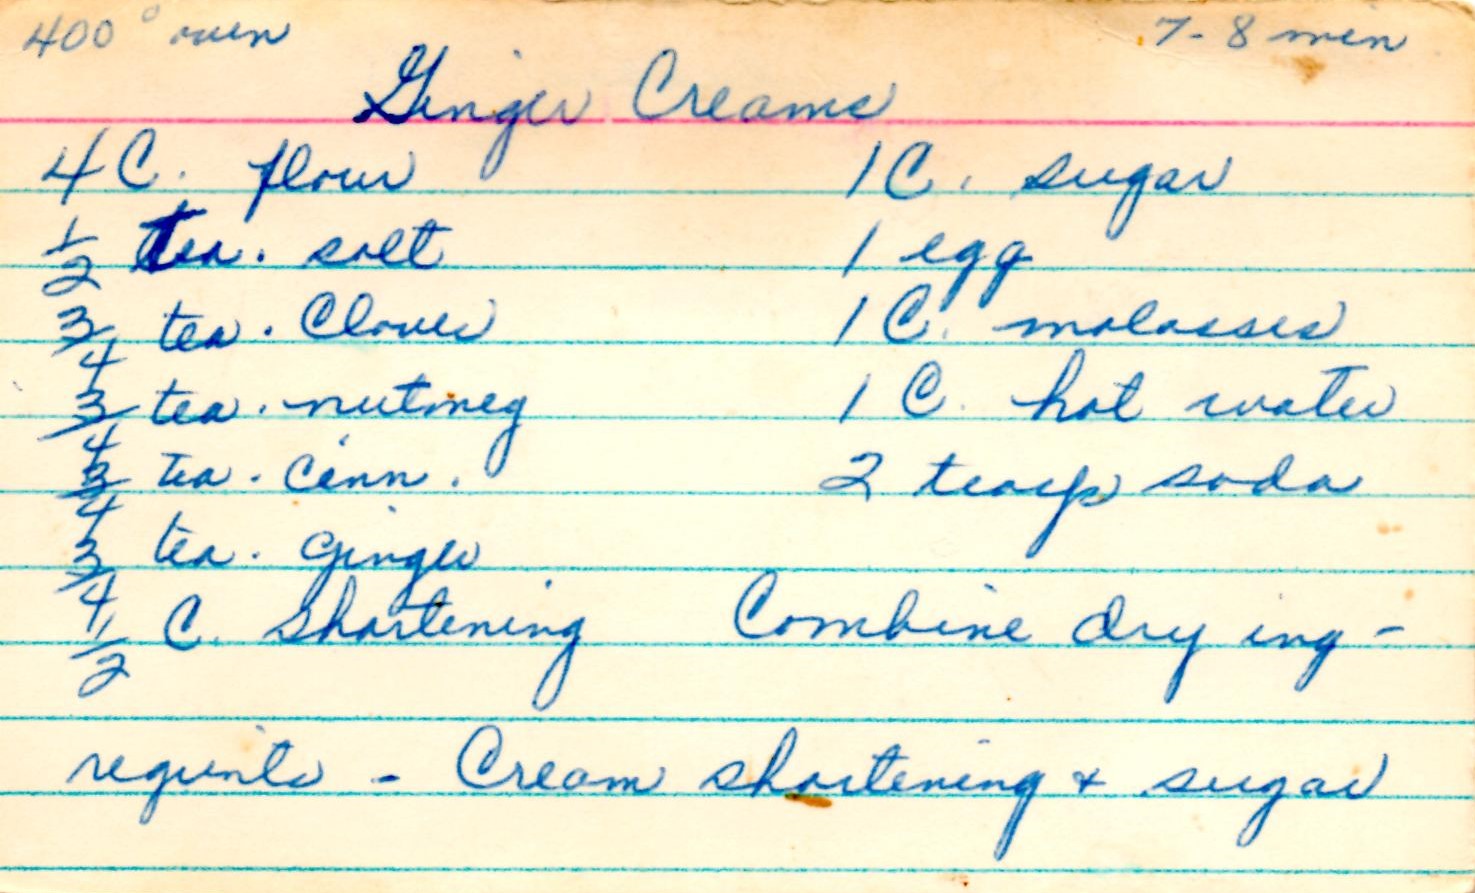 400° oven 7-8 min
Ginger Creams
4 C. flour
1/2 tea. salt
3/4 tea. Cloves
3/4 tea. nutmeg
3/4 tea. Cinn.
3/4 tea. Ginger
1/2 C. Shortening
1 C. sugar
1 egg
1 C. molasses
1 C. hot water
2 teasp soda
Combine dry ing-
regients - Cream shortening + sugar